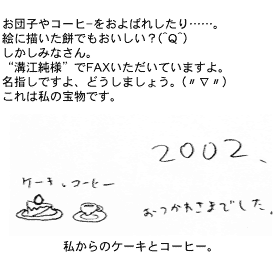 お団子やコーヒーをおよばれしたり……。
絵に描いた餅でもおいしい？(^Q^)
しかしみなさん。
“溝江純様”でFAXいただいていますよ。
名指しですよ、どうしましょう。(〃▽〃)
これは私の宝物です。
2002、
ケーキ、コーヒー
おつかれさまでした。
私からのケーキとコーヒー。